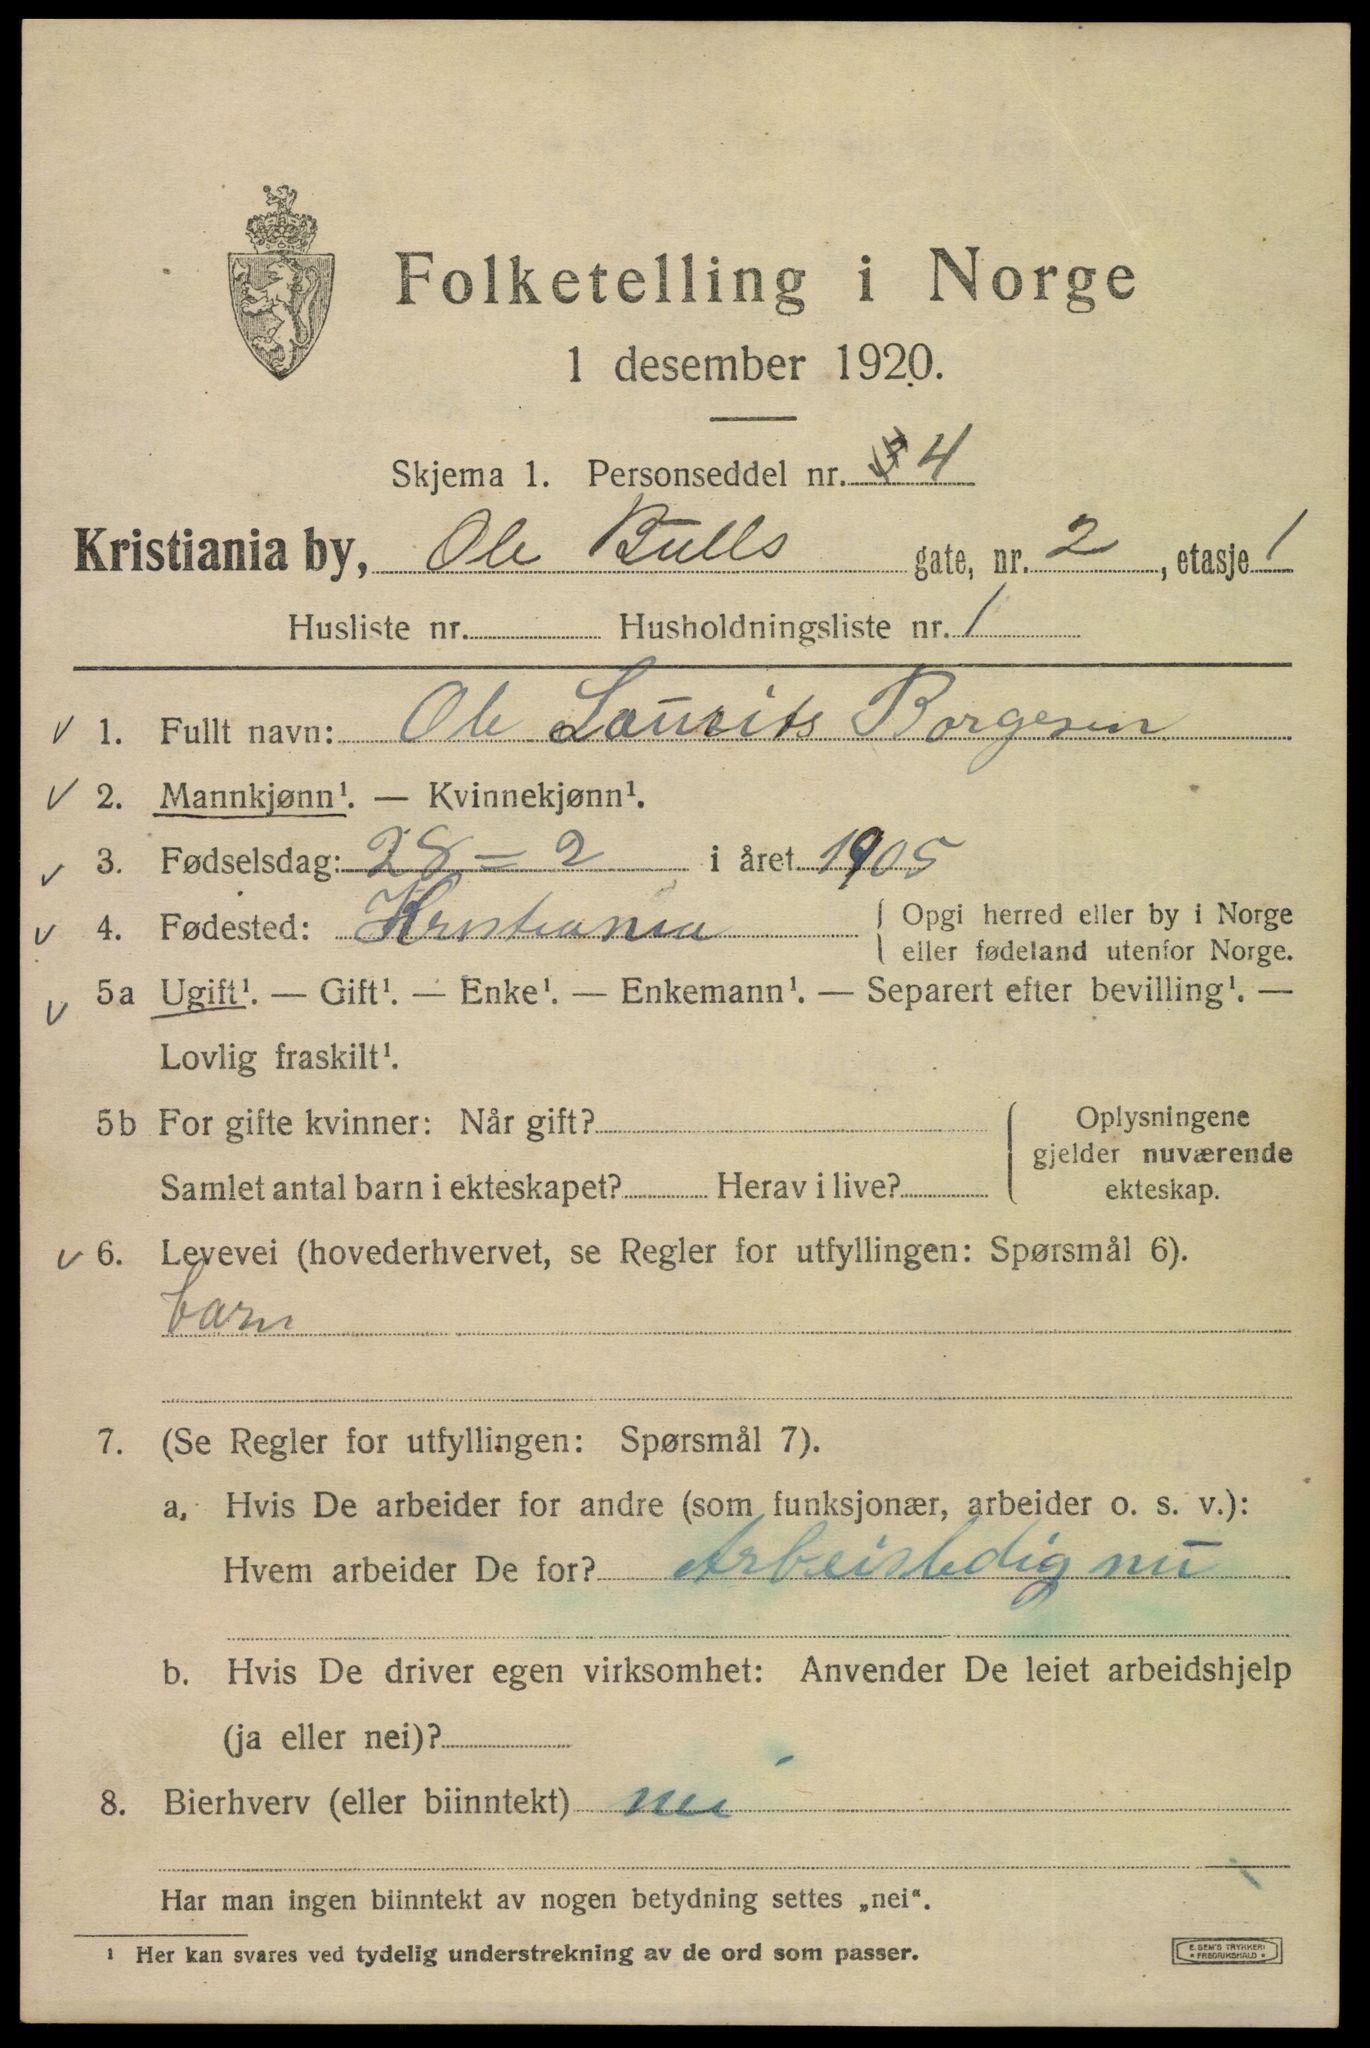 Folketelling i Norge
1 desember 1920.
Skjema 1. Personseddel nr. 4
Kristiania by, Ole Bulls gate, nr. 2, etasje 1
Husliste nr. Husholdningsliste nr. 1
1. Fullt navn: Ole Laurits Borgesen
2. Mannkjønn¹. — Kvinnekjønn¹.
3. Fødselsdag: 28 - 2 i året 1905
4. Fødested: Kristiania
Opgi herred eller by i Norge
eller fødeland utenfor Norge.
5a Ugift¹. — Gift¹. — Enke¹. — Enkemann¹. — Separert efter bevilling¹. —
Lovlig fraskilt¹.
5b For gifte kvinner: Når gift?
Samlet antal barn i ekteskapet? Herav i live?
Oplysningene
gjelder nuværende
ekteskap.
6. Levevei (hovederhvervet, se Regler for utfyllingen: Spørsmål 6).
barn
7. (Se Regler for utfyllingen: Spørsmål 7).
a. Hvis De arbeider for andre (som funksjonær, arbeider o. s. v.):
Hvem arbeider De for? Arbeisledig nu
b. Hvis De driver egen virksomhet: Anvender De leiet arbeidshjelp
(ja eller nei)?
8. Bierhverv (eller biinntekt) nei
Har man ingen biinntekt av nogen betydning settes „nei“.
¹ Her kan svares ved tydelig understrekning av de ord som passer.
E. SEM'S TRYKKERI
* FREDRIKSHALD *